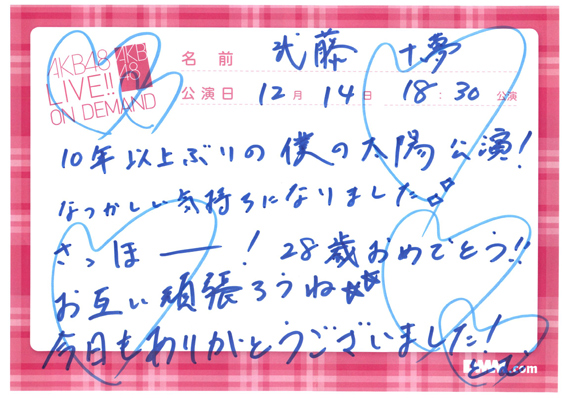 AKB48
LIVE!!
ON DEMAND
AKB
48
名前 武藤 十夢
公演日 12月 14日 18:30 公演
10年以上ぶりの僕の太陽公演!
なつかしい気持ちになりました
さっほー! 28歳おめでとう!!
お互い頑張ろうね
今日もありがとうございました!
とむ
.com